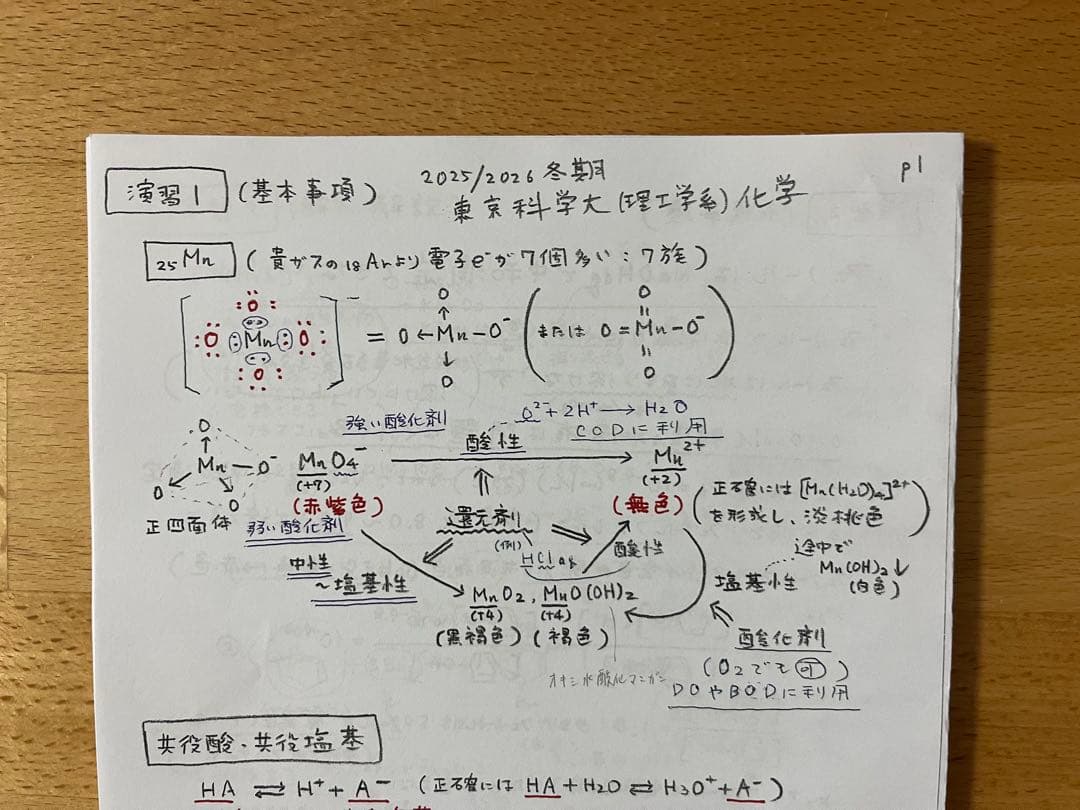 演習1 (基本事項) 2025/2026 冬期 p1
東京科学大(理工学系)化学
₂₅Mn (貴ガスの₁₈Arより電子e⁻が7個多い:7族)
O O
[:O: Mn :O:]⁻ = O←Mn−O⁻ (または O=Mn−O⁻)
O O
強い酸化剤 O²⁻+2H⁺→H₂O
酸性 CODに利用
O
Mn−O⁻ MnO₄⁻ → Mn²⁺
O O (+7) (+2)
正四面体 (赤紫色) 還元剤 (無色) (正確には[Mn(H₂O)₆]²⁺
を形成し、淡桃色)
弱い酸化剤 (例) HClaq 酸性
中性
~塩基性 塩基性 途中で
Mn(OH)₂↓
(白色)
MnO₂, MnO(OH)₂
(+4) (+4)
(黒褐色) (褐色) 酸化剤
オキシ水酸化マンガン (O₂でも可)
DOやBODに利用
共役酸・共役塩基
HA ⇄ H⁺+A⁻ (正確には HA+H₂O ⇄ H₃O⁺+A⁻)